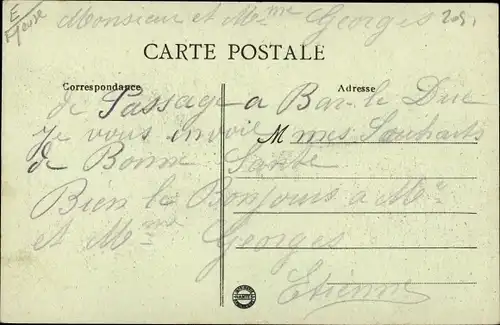 E
Meuse
Monsieur et Mme Georges 205.
CARTE POSTALE
Correspondance
Adresse
de Passage a Bar-le Duc
Je vous envoie M mes Souhaits
de Bonne Sante
Bien le Bonjours a Mr
et Mme Georges
Etienne